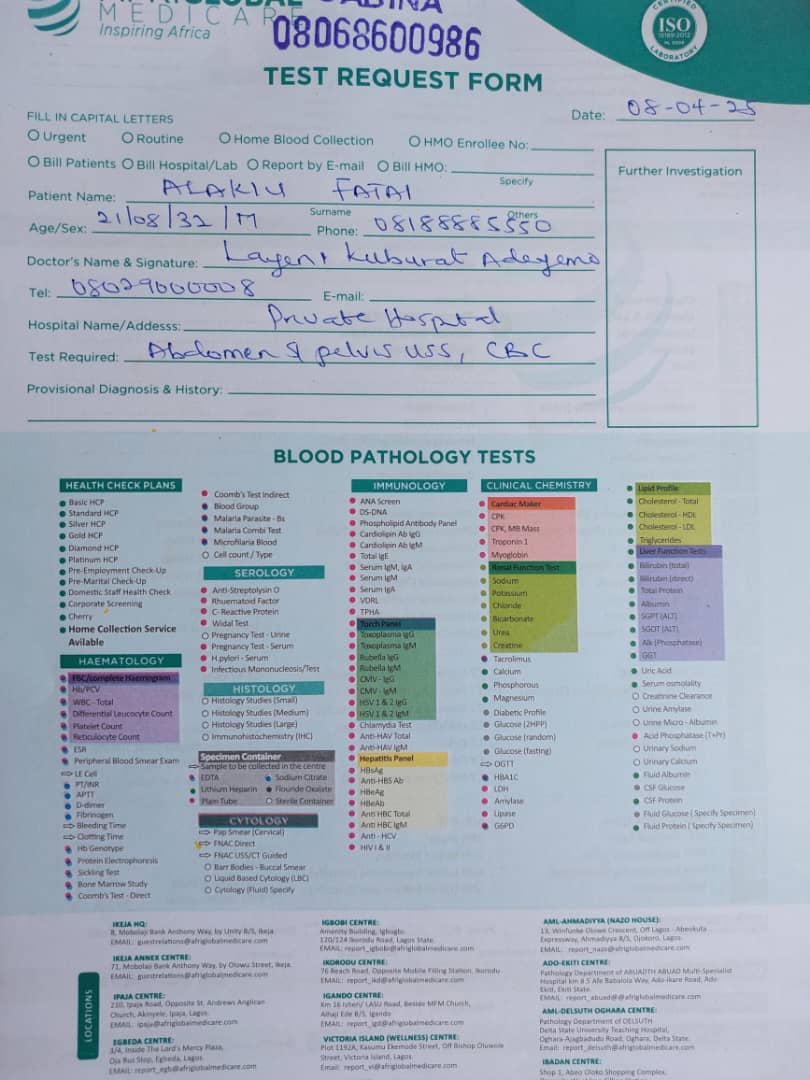 MEDICAR
Inspiring Africa
08068600986
CERTIFIED
ISO
15189:2012
LABORATORY
TEST REQUEST FORM
FILL IN CAPITAL LETTERS
Date: 08-04-25
Urgent Routine Home Blood Collection HMO Enrollee No:
Bill Patients Bill Hospital/Lab Report by E-mail Bill HMO:
Specify
Further Investigation
Patient Name: ALAKIU FATAI
Surname Others
Age/Sex: 21/08/32/M Phone: 08188885550
Doctor's Name & Signature: Layeni Kuburat Adeyemo
Tel: 08029000008 E-mail:
Hospital Name/Addesss: Private Hospital
Test Required: Abdomen & pelvis USS, CBC
Provisional Diagnosis & History:
BLOOD PATHOLOGY TESTS
HEALTH CHECK PLANS
Basic HCP
Standard HCP
Silver HCP
Gold HCP
Diamond HCP
Platinum HCP
Pre-Employment Check-Up
Pre-Marital Check-Up
Domestic Staff Health Check
Corporate Screening
Cherry
Home Collection Service
Avilable
HAEMATOLOGY
FBC/complete Haemogram
Hb/PCV
WBC - Total
Differential Leucocyte Count
Platelet Count
Reticulocyte Count
ESR
Peripheral Blood Smear Exam
LE Cell
PT/INR
APTT
D-dimer
Fibrinogen
Bleeding Time
Clotting Time
Hb Genotype
Protein Electrophoresis
Sickling Test
Bone Marrow Study
Coomb's Test - Direct
Coomb's Test Indirect
Blood Group
Malaria Parasite - Bs
Malaria Combi Test
Microfilaria Blood
Cell count / Type
SEROLOGY
Anti-Streptolysin O
Rhuematoid Factor
C- Reactive Protein
Widal Test
Pregnancy Test - Urine
Pregnancy Test - Serum
H.pylori - Serum
Infectious Mononucleosis/Test
HISTOLOGY
Histology Studies (Small)
Histology Studies (Medium)
Histology Studies (Large)
Immunohistochemistry (IHC)
Specimen Container
Sample to be collected in the centre
EDTA Sodium Citrate
Lithium Heparin Flouride Oxalate
Plain Tube Sterile Container
CYTOLOGY
Pap Smear (Cervical)
FNAC Direct
FNAC USS/CT Guided
Barr Bodies - Buccal Smear
Liquid Based Cytology (LBC)
Cytology (Fluid) Specify
IMMUNOLOGY
ANA Screen
DS-DNA
Phospholipid Antibody Panel
Cardiolipin Ab IgG
Cardiolipin Ab IgM
Total IgE
Serum IgM, IgA
Serum IgM
Serum IgA
VDRL
TPHA
Torch Panel
Toxoplasma IgG
Toxoplasma IgM
Rubella IgG
Rubella IgM
CMV - IgG
CMV - IgM
HSV 1 & 2 IgG
HSV 1 & 2 IgM
Chlamydia Test
Anti-HAV Total
Anti-HAV IgM
Hepatitis Panel
HBsAg
Anti-HBS Ab
HBeAg
HBeAb
Anti HBC Total
Anti HBC IgM
Anti - HCV
HIV I & II
CLINICAL CHEMISTRY
Cardiac Maker
CPK
CPK, MB Mass
Troponin 1
Myoglobin
Renal Function Test
Sodium
Potassium
Chloride
Bicarbonate
Urea
Creatine
Tacrolimus
Calcium
Phosphorous
Magnesium
Diabetic Profile
Glucose (2HPP)
Glucose (random)
Glucose (fasting)
OGTT
HBA1C
LDH
Amylase
Lipase
G6PD
Lipid Profile
Cholesterol - Total
Cholesterol - HDL
Cholesterol - LDL
Triglycerides
Liver Function Tests
Bilirubin (total)
Bilirubin (direct)
Total Protein
Albumin
SGPT (ALT)
SGOT (ALT)
Alk (Phosphatase)
GGT
Uric Acid
Serum osmolality
Creatinine Clearance
Urine Amylase
Urine Micro - Albumin
Acid Phosphatase (T+Pr)
Urinary Sodium
Urinary Calcium
Fluid Albumin
CSF Glucose
CSF Protein
Fluid Glucose ( Specify Specimen)
Fluid Protein ( Specify Specimen)
LOCATIONS
IKEJA HQ:
8, Mobolaji Bank Anthony Way, by Unity B/S, Ikeja.
EMAIL: guestrelations@afriglobalmedicare.com
IKEJA ANNEX CENTRE:
71, Mobolaji Bank Anthony Way, by Olowu Street, Ikeja.
EMAIL: guestrelations@afriglobalmedicare.com
IPAJA CENTRE:
210, Ipaja Road, Opposite St. Andrews Anglican
Church, Akinyele, Ipaja, Lagos.
EMAIL: ipaja@afriglobalmedicare.com
EGBEDA CENTRE:
3/4, Inside The Lord's Mercy Plaza,
Oja Bus Stop, Egbeda, Lagos.
EMAIL: report_egb@afriglobalmedicare.com
IGBOBI CENTRE:
Amenity Building, Igbogbo.
120/124 Ikorodu Road, Lagos State.
EMAIL: report_igbobi@afriglobalmedicare.com
IKORODU CENTRE:
76 Beach Road, Opposite Mobile Filling Station, Ikorodu
EMAIL: report_ikd@afriglobalmedicare.com
IGANDO CENTRE:
Km 16 Isheri/ LASU Road, Beside MFM Church,
Alhaji Ede B/S, Igando
EMAIL: report_igd@afriglobalmedicare.com
VICTORIA ISLAND (WELLNESS) CENTRE:
Plot 1192A, Kasumu Ekemode Street, Off Bishop Oluwole
Street, Victoria Island, Lagos.
Email: report_vi@afriglobalmedicare.com
AML-AHMADIYYA (NAZO HOUSE):
13, Winfunke Olowe Crescent, Off Lagos - Abeokuta
Expressway, Ahmadiyya B/S, Ojokoro, Lagos.
EMAIL: report_nazo@afriglobalmedicare.com
ADO-EKITI CENTRE:
Pathology Department of ABUADTH ABUAD Multi-Specialist
Hospital km 8.5 Afe Babalola Way, Ado-Ikare Road, Ado-
Ekiti, Ekiti State.
EMAIL: report_abuad@afriglobalmedicare.com
AML-DELSUTH OGHARA CENTRE:
Pathology Department of DELSUTH
Delta State University Teaching Hospital,
Oghara-Ajagbadudu Road, Oghara, Delta State.
Email: report_delsuth@afriglobalmedicare.com
IBADAN CENTRE:
Shop 1, Abeo Oloko Shopping Complex,